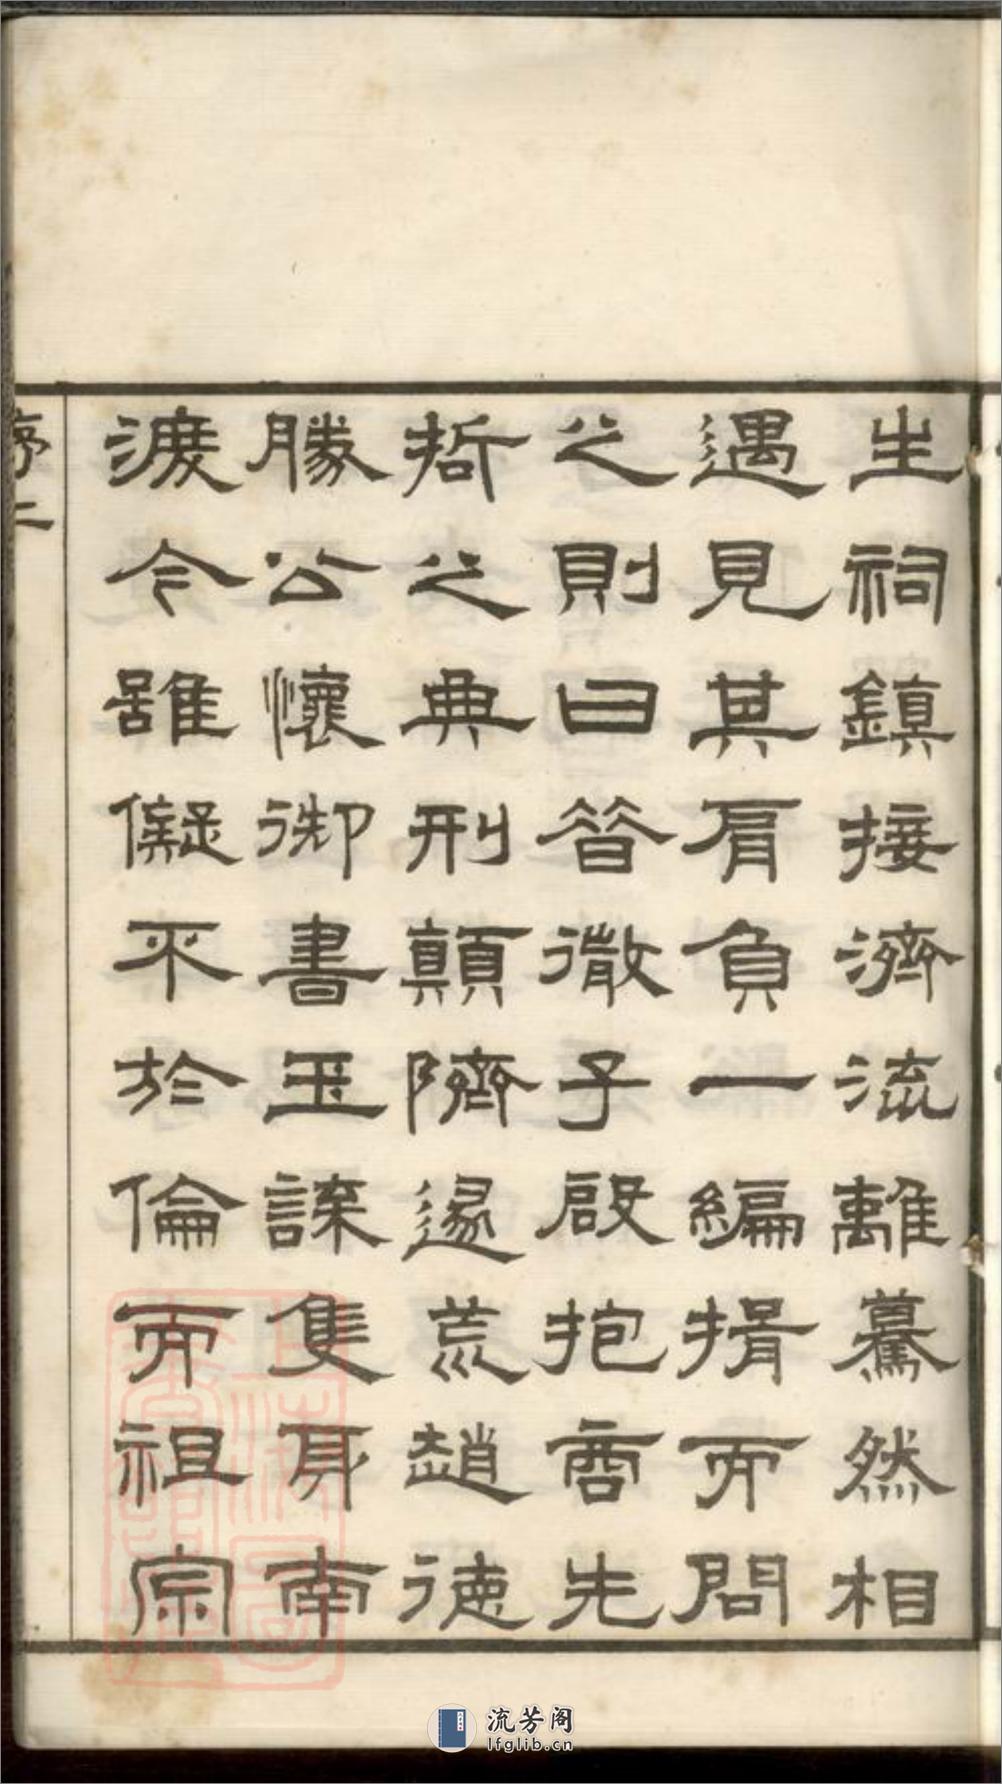 生祠鎮接濟流離驀然相
遇見其肩負一編揖而問
之則曰昔微子啟抱商先
哲之典刑顛隮遜荒趙德
勝公懷御書玉諜隻身南
渡今雖儗不於倫而祖宗
序二
流芳阁
lfglib.cn